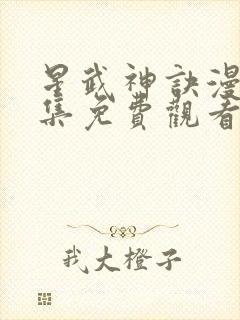 星武神訣漫
集免費觀看
我大橙子